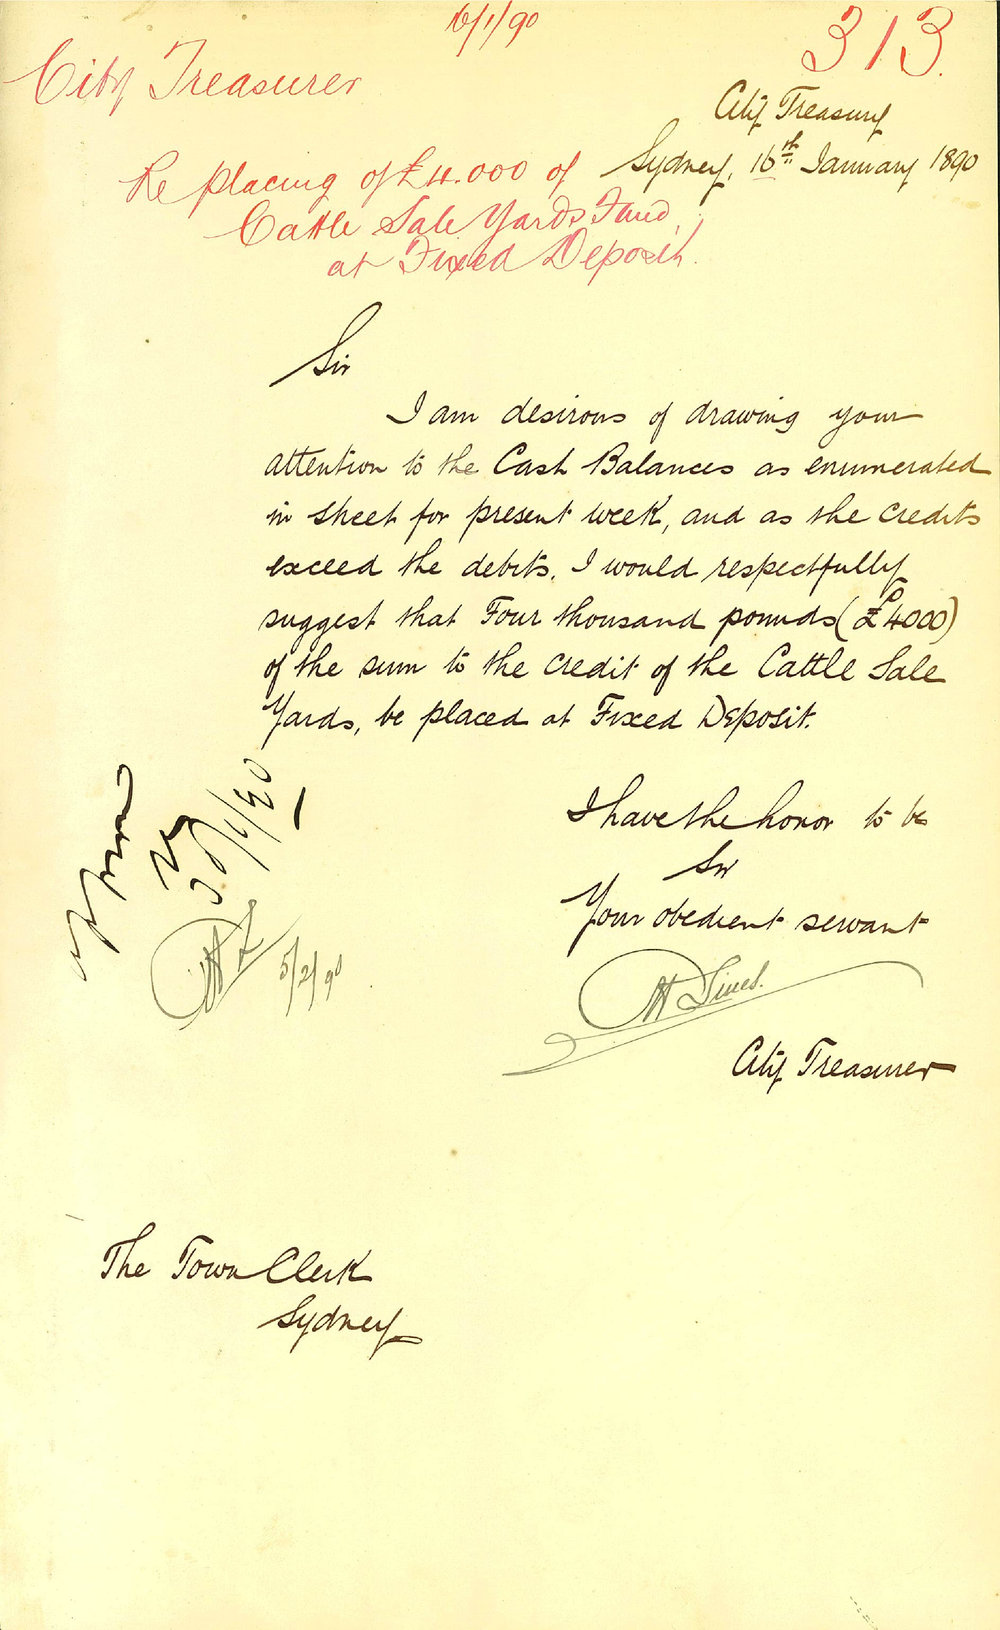 16/1/90
313.
City Treasurer
City Treasury
Sydney, 16th January 1890
Re placing of £4.000 of
Cattle Sale Yards Fund,
at Fixed Deposit.
Sir
I am desirous of drawing your
attention to the Cash Balances as enumerated
in sheet for present week, and as the credits
exceed the debits, I would respectfully
suggest that Four thousand pounds (£4000)
of the sum to the credit of the Cattle Sale
Yards, be placed at Fixed Deposit.
I have the honor to be
Sir
Your obedient servant
Lines.
City Treasurer
5/2/90
The Town Clerk
Sydney